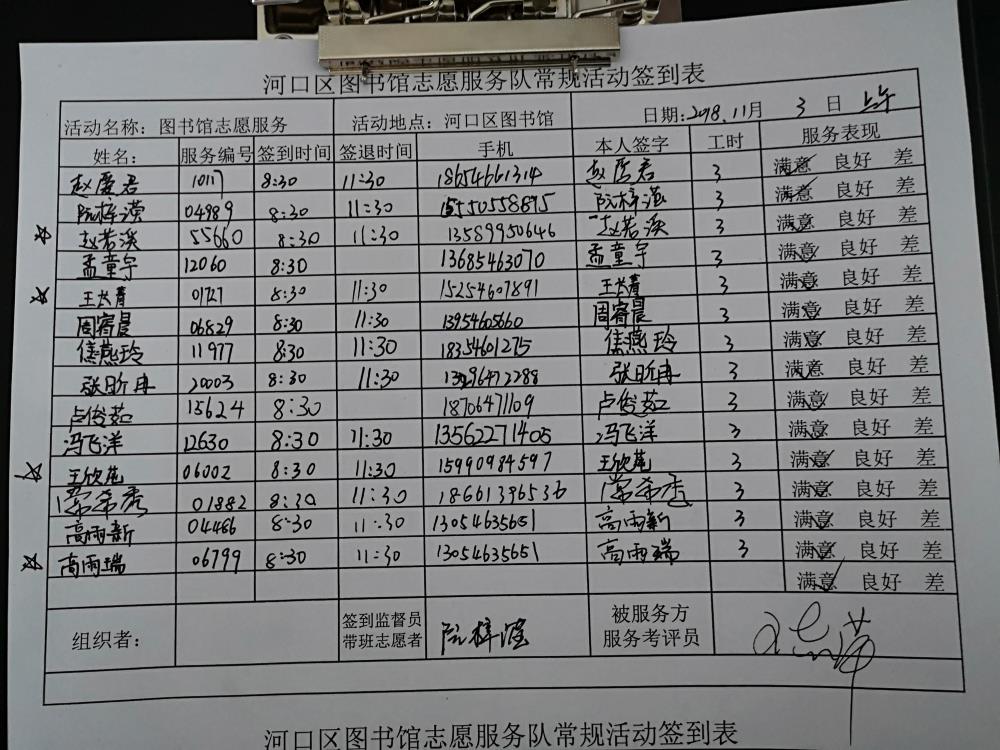 河口区图书馆志愿服务队常规活动签到表
活动名称：图书馆志愿服务 活动地点：河口区图书馆 日期：2018.11月 3 日 上午
姓名： 服务编号 签到时间 签退时间 手机 本人签字 工时 服务表现
10117 8:30 11:30 18654661314 3 满意 良好 差
阮梓滢 04989 8:30 11:30 15550558895 阮梓滢 3 满意 良好 差
赵若溪 55660 8:30 11:30 13589950646 赵若溪 3 满意 良好 差
孟童宇 12060 8:30 13685463070 孟童宇 3 满意 良好 差
王长青 01727 8:30 11:30 15254607891 王长青 3 满意 良好 差
周睿晨 06829 8:30 11:30 13954605660 周睿晨 3 满意 良好 差
焦燕玲 11977 8:30 11:30 18354601275 焦燕玲 3 满意 良好 差
张昕冉 20003 8:30 11:30 张昕冉 3 满意 良好 差
卢俊茹 15624 8:30 18706471109 卢俊茹 3 满意 良好 差
冯飞洋 12630 8:30 11:30 13562271405 冯飞洋 3 满意 良好 差
王欣苑 06002 8:30 11:30 15990984597 王欣苑 3 满意 良好 差
常希秀 01882 8:30 11:30 18661396536 常希秀 3 满意 良好 差
高雨新 04486 8:30 11:30 13054635651 高雨新 3 满意 良好 差
高雨瑞 06799 8:30 11:30 13054635651 高雨瑞 3 满意 良好 差
满意 良好 差
组织者： 签到监督员 阮梓滢 被服务方
带班志愿者 服务考评员
河口区图书馆志愿服务队常规活动签到表